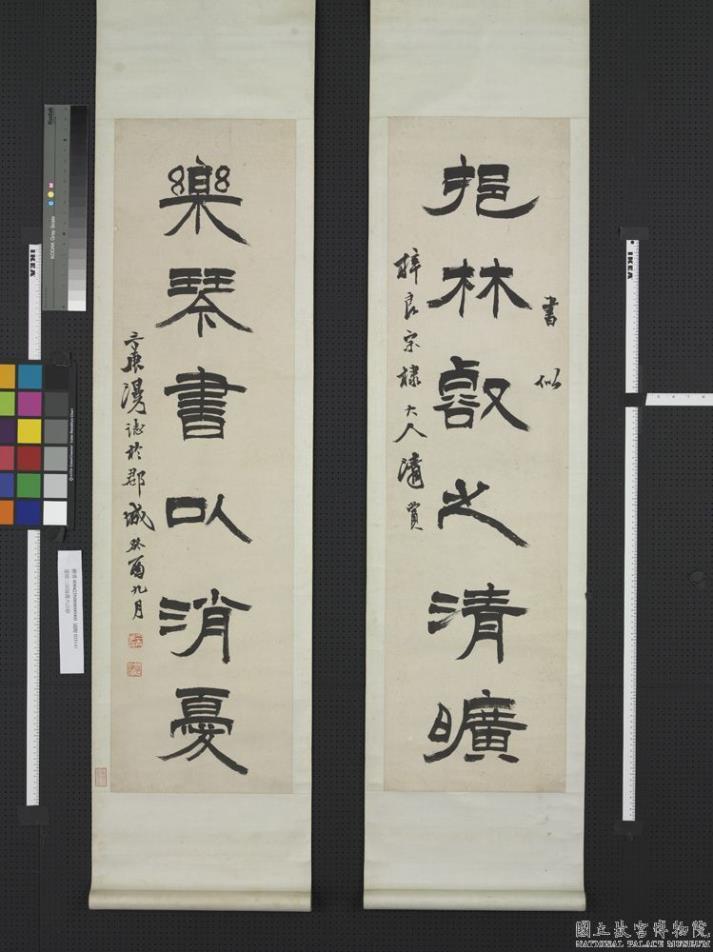 書似
挹林㕡之清曠
梓良宗棣大人清賞
樂琴書以消憂
於郡城癸酉九月
IKEA
IKEA
KODAK Gray Scale
國立故宮博物院
NATIONAL PALACE MUSEUM